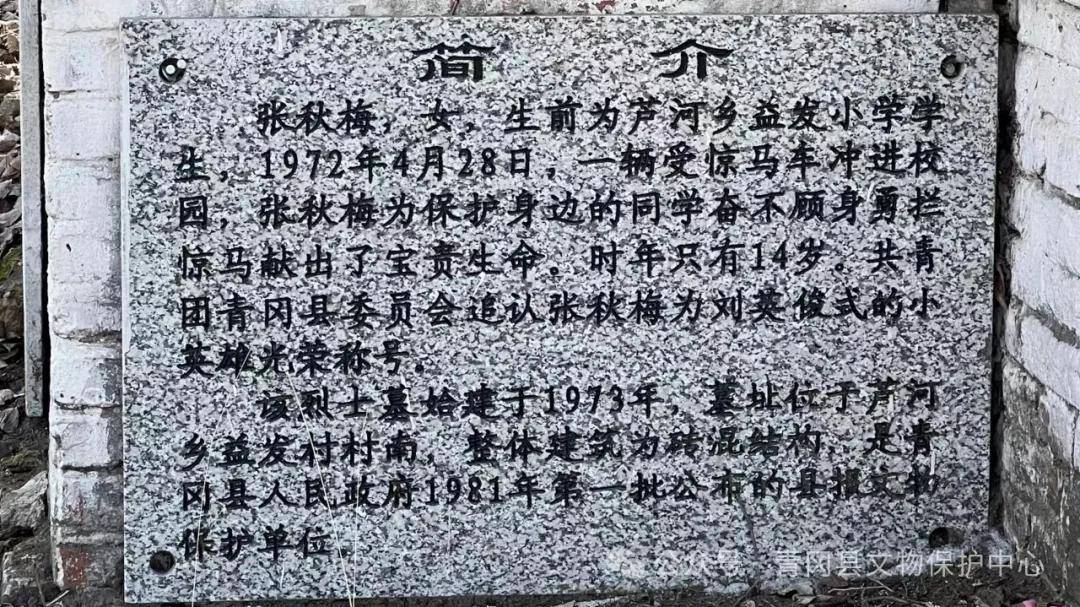 简 介
张秋梅，女，生前为芦河乡益发小学学
生，1972年4月28日，一辆受惊马车冲进校
园，张秋梅为保护身边的同学奋不顾身勇拦
惊马献出了宝贵生命。时年只有14岁。共青
团青冈县委员会追认张秋梅为刘英俊式的小
英雄光荣称号。
该烈士墓始建于1973年，墓址位于芦河
乡益发村村南，整体建筑为砖混结构，是青
冈县人民政府1981年第一批公布的县报文物
保护单位
公众号·青冈县文物保护中心